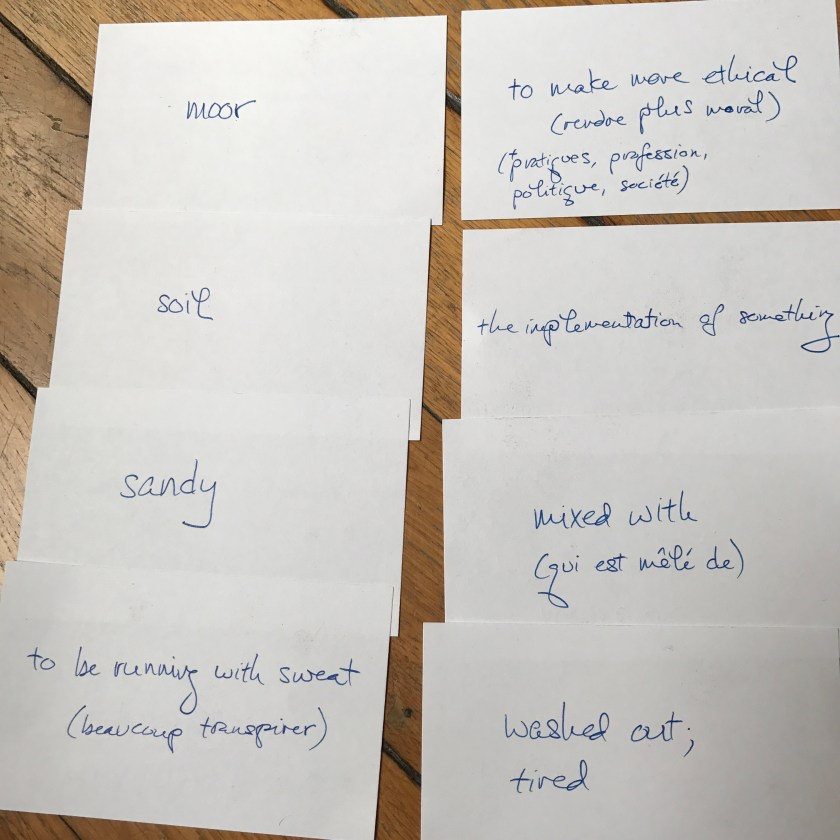 moor
soil
sandy
to be running with sweat
(beaucoup transpirer)
to make more ethical
(rendre plus moral)
(+pratiques, profession,
politique, société)
the implementation of something
mixed with
(qui est mêlé de)
washed out;
tired